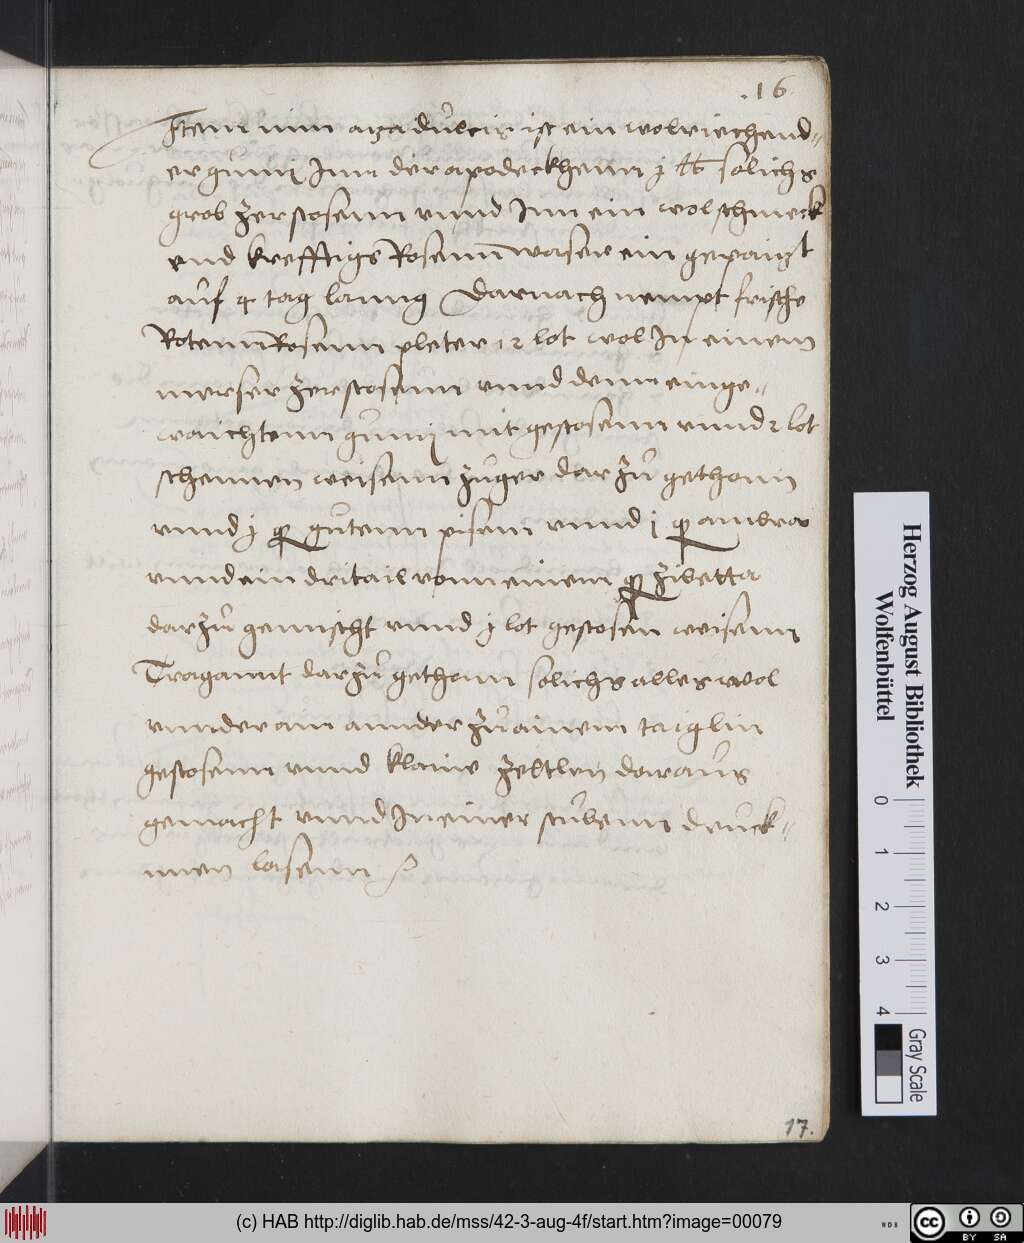 .16
Item nim asa dulcis ist ein wolriechend=
er gumi Inn der apodeckhenn j ℔ solichs
grob zerstosenn vnnd Inn ein wol schmeck
vnd krefftigs Rosennwaser ein gepaigt
auf 4 tag lanng Darnach nempt frische
RotennRosenn pleter 12 lot wol In einem
merser zerstosenn vnnd denn einge=
waichtenn gumj mit gestosenn vnnd 2 lot
schennen weisenn zuger dar zu gethonn
vnnd j qr gutenn pisem vnnd j qr ambra
vnnd ein dritail vonn einem qr zibetta
darzu gemischt vnnd j lot gestosen weisenn
Tragannt darzu gethann solichs alles wol
vnnder ain annder zu ainem taiglin
gestosenn vnnd klaine zeltlen daraus
gemacht vnnd In einer stubenn druck=
nnen lasenn
17.
Herzog August Bibliothek
Wolfenbüttel
0 1 2 3 4
Gray Scale
(c) HAB http://diglib.hab.de/mss/42-3-aug-4f/start.htm?image=00079
WDB
cc BY SA